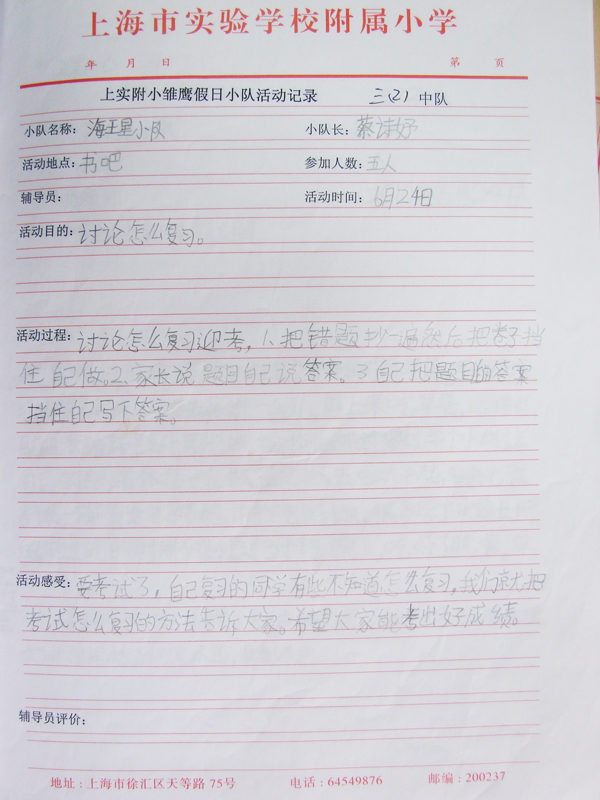 上海市实验学校附属小学
年 月 日 第 页
上实附小雏鹰假日小队活动记录 三(2)中队
小队名称: 海王星小队 小队长: 蔡诗妤
活动地点: 书吧 参加人数: 五人
辅导员: 活动时间: 6月24日
活动目的: 讨论怎么复习。
活动过程: 讨论怎么复习迎考,1、把错题抄一遍然后把卷子挡
住自己做。2、家长说题目自己说答案。3自己把题目的答案
挡住自己写下答案。
活动感受: 要考试了,自己复习的同学有些不知道怎么复习,我们就把
考试怎么复习的方法告诉大家。希望大家能考出好成绩。
辅导员评价:
地址:上海市徐汇区天等路75号 电话:64549876 邮编:200237